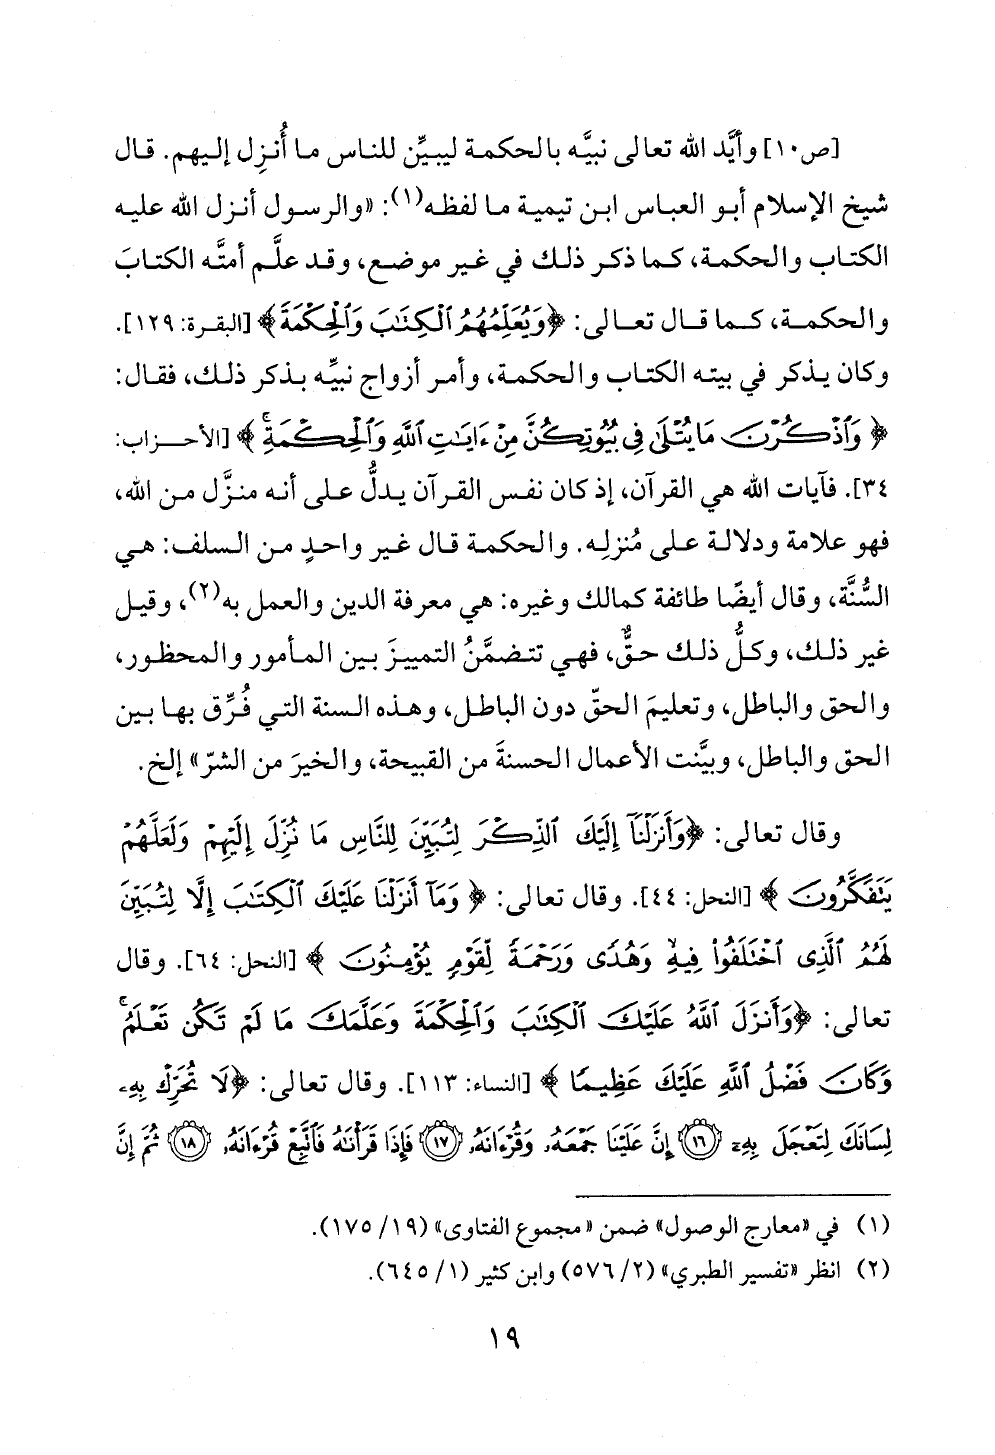 [ص١٠] وأيَّد الله تعالى نبيَّه بالحكمة ليبيِّن للناس ما أُنزِل إليهم. قال
شيخ الإسلام أبو العباس ابن تيمية ما لفظه(١): «والرسول أنزل الله عليه
الكتاب والحكمة، كما ذكر ذلك في غير موضع، وقد علَّم أمتَّه الكتابَ
والحكمة، كما قال تعالى: ﴿وَيُعَلِّمُهُمُ ٱلْكِتَٰبَ وَٱلْحِكْمَةَ﴾ [البقرة: ١٢٩].
وكان يذكر في بيته الكتاب والحكمة، وأمر أزواج نبيِّه بذكر ذلك، فقال:
﴿وَٱذْكُرْنَ مَا يُتْلَىٰ فِى بُيُوتِكُنَّ مِنْ ءَايَٰتِ ٱللَّهِ وَٱلْحِكْمَةِ ۚ﴾ [الأحزاب:
٣٤]. فآيات الله هي القرآن، إذ كان نفس القرآن يدلُّ على أنه منزَّل من الله،
فهو علامة ودلالة على مُنزلِه. والحكمة قال غير واحدٍ من السلف: هي
السُّنَّة، وقال أيضًا طائفة كمالك وغيره: هي معرفة الدين والعمل به(٢)، وقيل
غير ذلك، وكلُّ ذلك حقٌّ، فهي تتضمَّنُ التمييزَ بين المأمور والمحظور،
والحق والباطل، وتعليمَ الحقّ دون الباطل، وهذه السنة التي فُرِّق بها بين
الحق والباطل، وبيَّنت الأعمال الحسنةَ من القبيحة، والخيرَ من الشرّ» إلخ.
وقال تعالى: ﴿وَأَنزَلْنَآ إِلَيْكَ ٱلذِّكْرَ لِتُبَيِّنَ لِلنَّاسِ مَا نُزِّلَ إِلَيْهِمْ وَلَعَلَّهُمْ
يَتَفَكَّرُونَ﴾ [النحل: ٤٤]. وقال تعالى: ﴿وَمَآ أَنزَلْنَا عَلَيْكَ ٱلْكِتَٰبَ إِلَّا لِتُبَيِّنَ
لَهُمُ ٱلَّذِى ٱخْتَلَفُوا۟ فِيهِ ۙ وَهُدًى وَرَحْمَةً لِّقَوْمٍ يُؤْمِنُونَ﴾ [النحل: ٦٤]. وقال
تعالى: ﴿وَأَنزَلَ ٱللَّهُ عَلَيْكَ ٱلْكِتَٰبَ وَٱلْحِكْمَةَ وَعَلَّمَكَ مَا لَمْ تَكُن تَعْلَمُ ۚ
وَكَانَ فَضْلُ ٱللَّهِ عَلَيْكَ عَظِيمًا﴾ [النساء: ١١٣]. وقال تعالى: ﴿لَا تُحَرِّكْ بِهِۦ
لِسَانَكَ لِتَعْجَلَ بِهِۦٓ ١٦ إِنَّ عَلَيْنَا جَمْعَهُۥ وَقُرْءَانَهُۥ ١٧ فَإِذَا قَرَأْنَٰهُ فَٱتَّبِعْ قُرْءَانَهُۥ ١٨ ثُمَّ إِنَّ
(١) في «معارج الوصول» ضمن «مجموع الفتاوى» (١٩/ ١٧٥).
(٢) انظر «تفسير الطبري» (٢/ ٥٧٦) وابن كثير (١/ ٦٤٥).
١٩